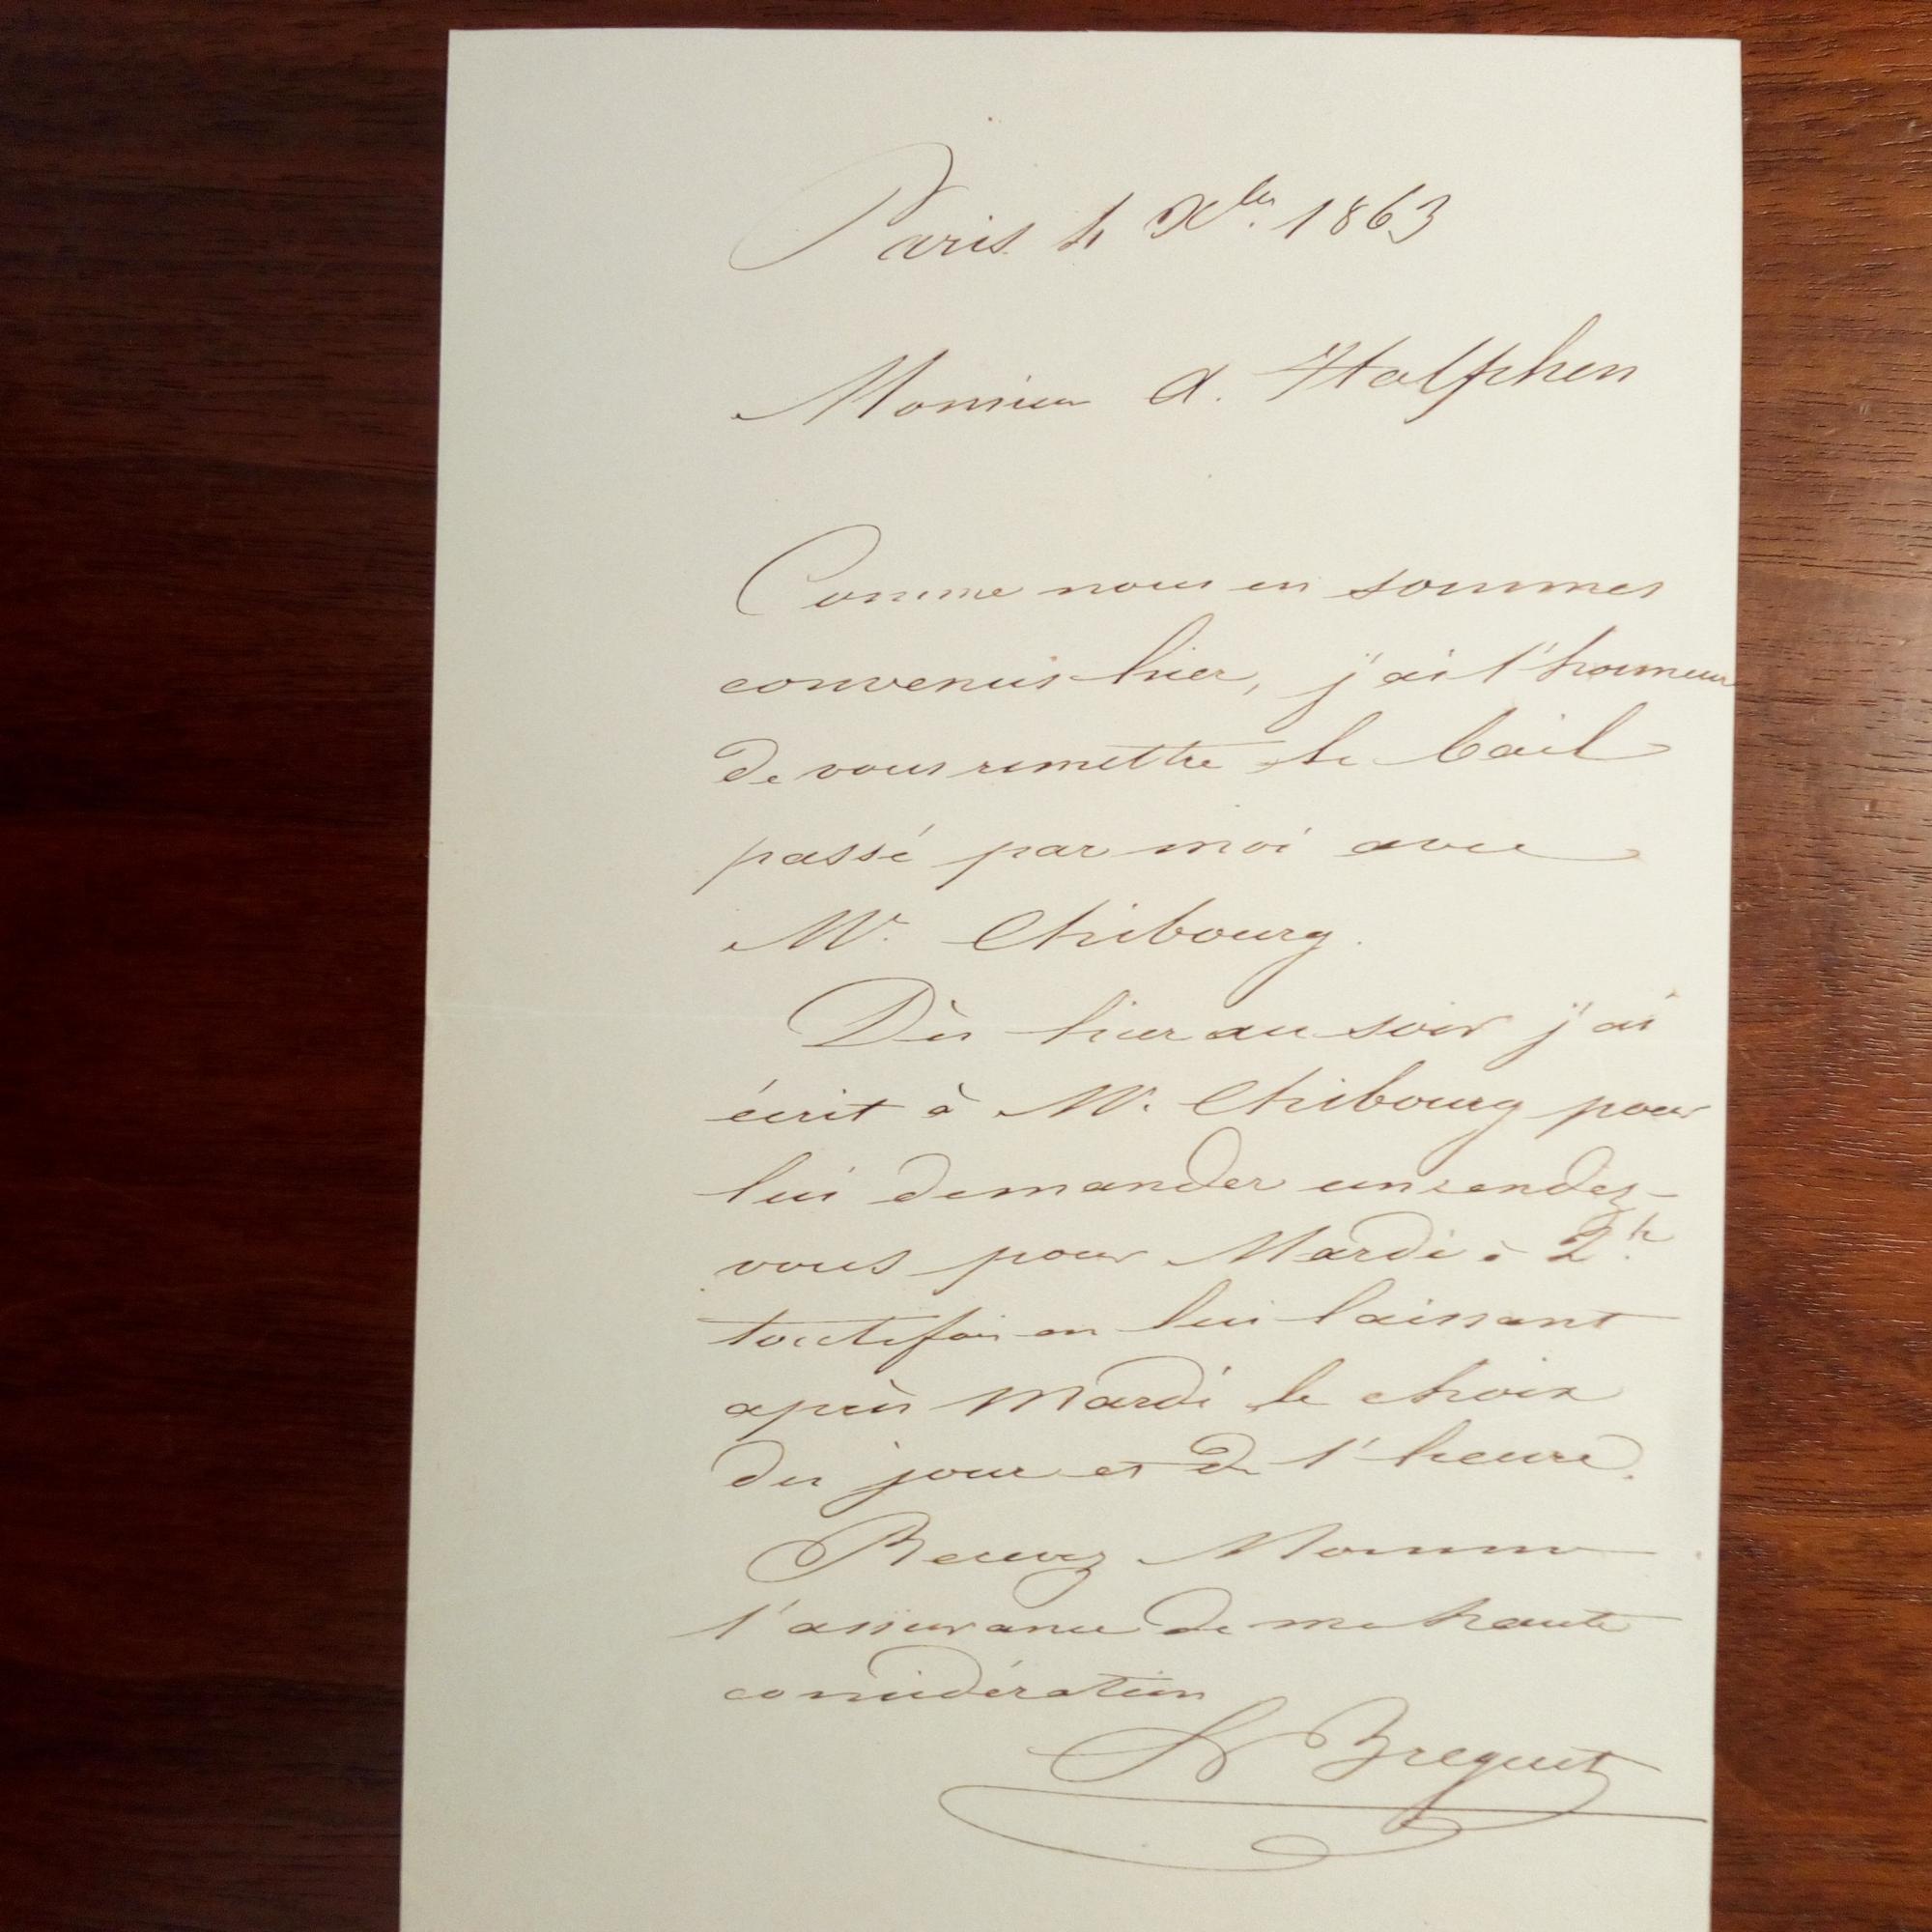 Paris 4 Xbre. 1863
Monsieur A. Halphen
Comme nous en sommes
convenus hier, j'ai l'honneur
de vous remettre le bail
passé par moi avec
Mr. Chibourg.
Dès hier au soir j'ai
écrit à Mr. Chibourg pour
lui demander un rendez-
vous pour Mardi à 2h.
toutefois en lui laissant
après Mardi le choix
du jour et de l'heure.
Recevez Monsieur
l'assurance de ma haute
considération
Breguet